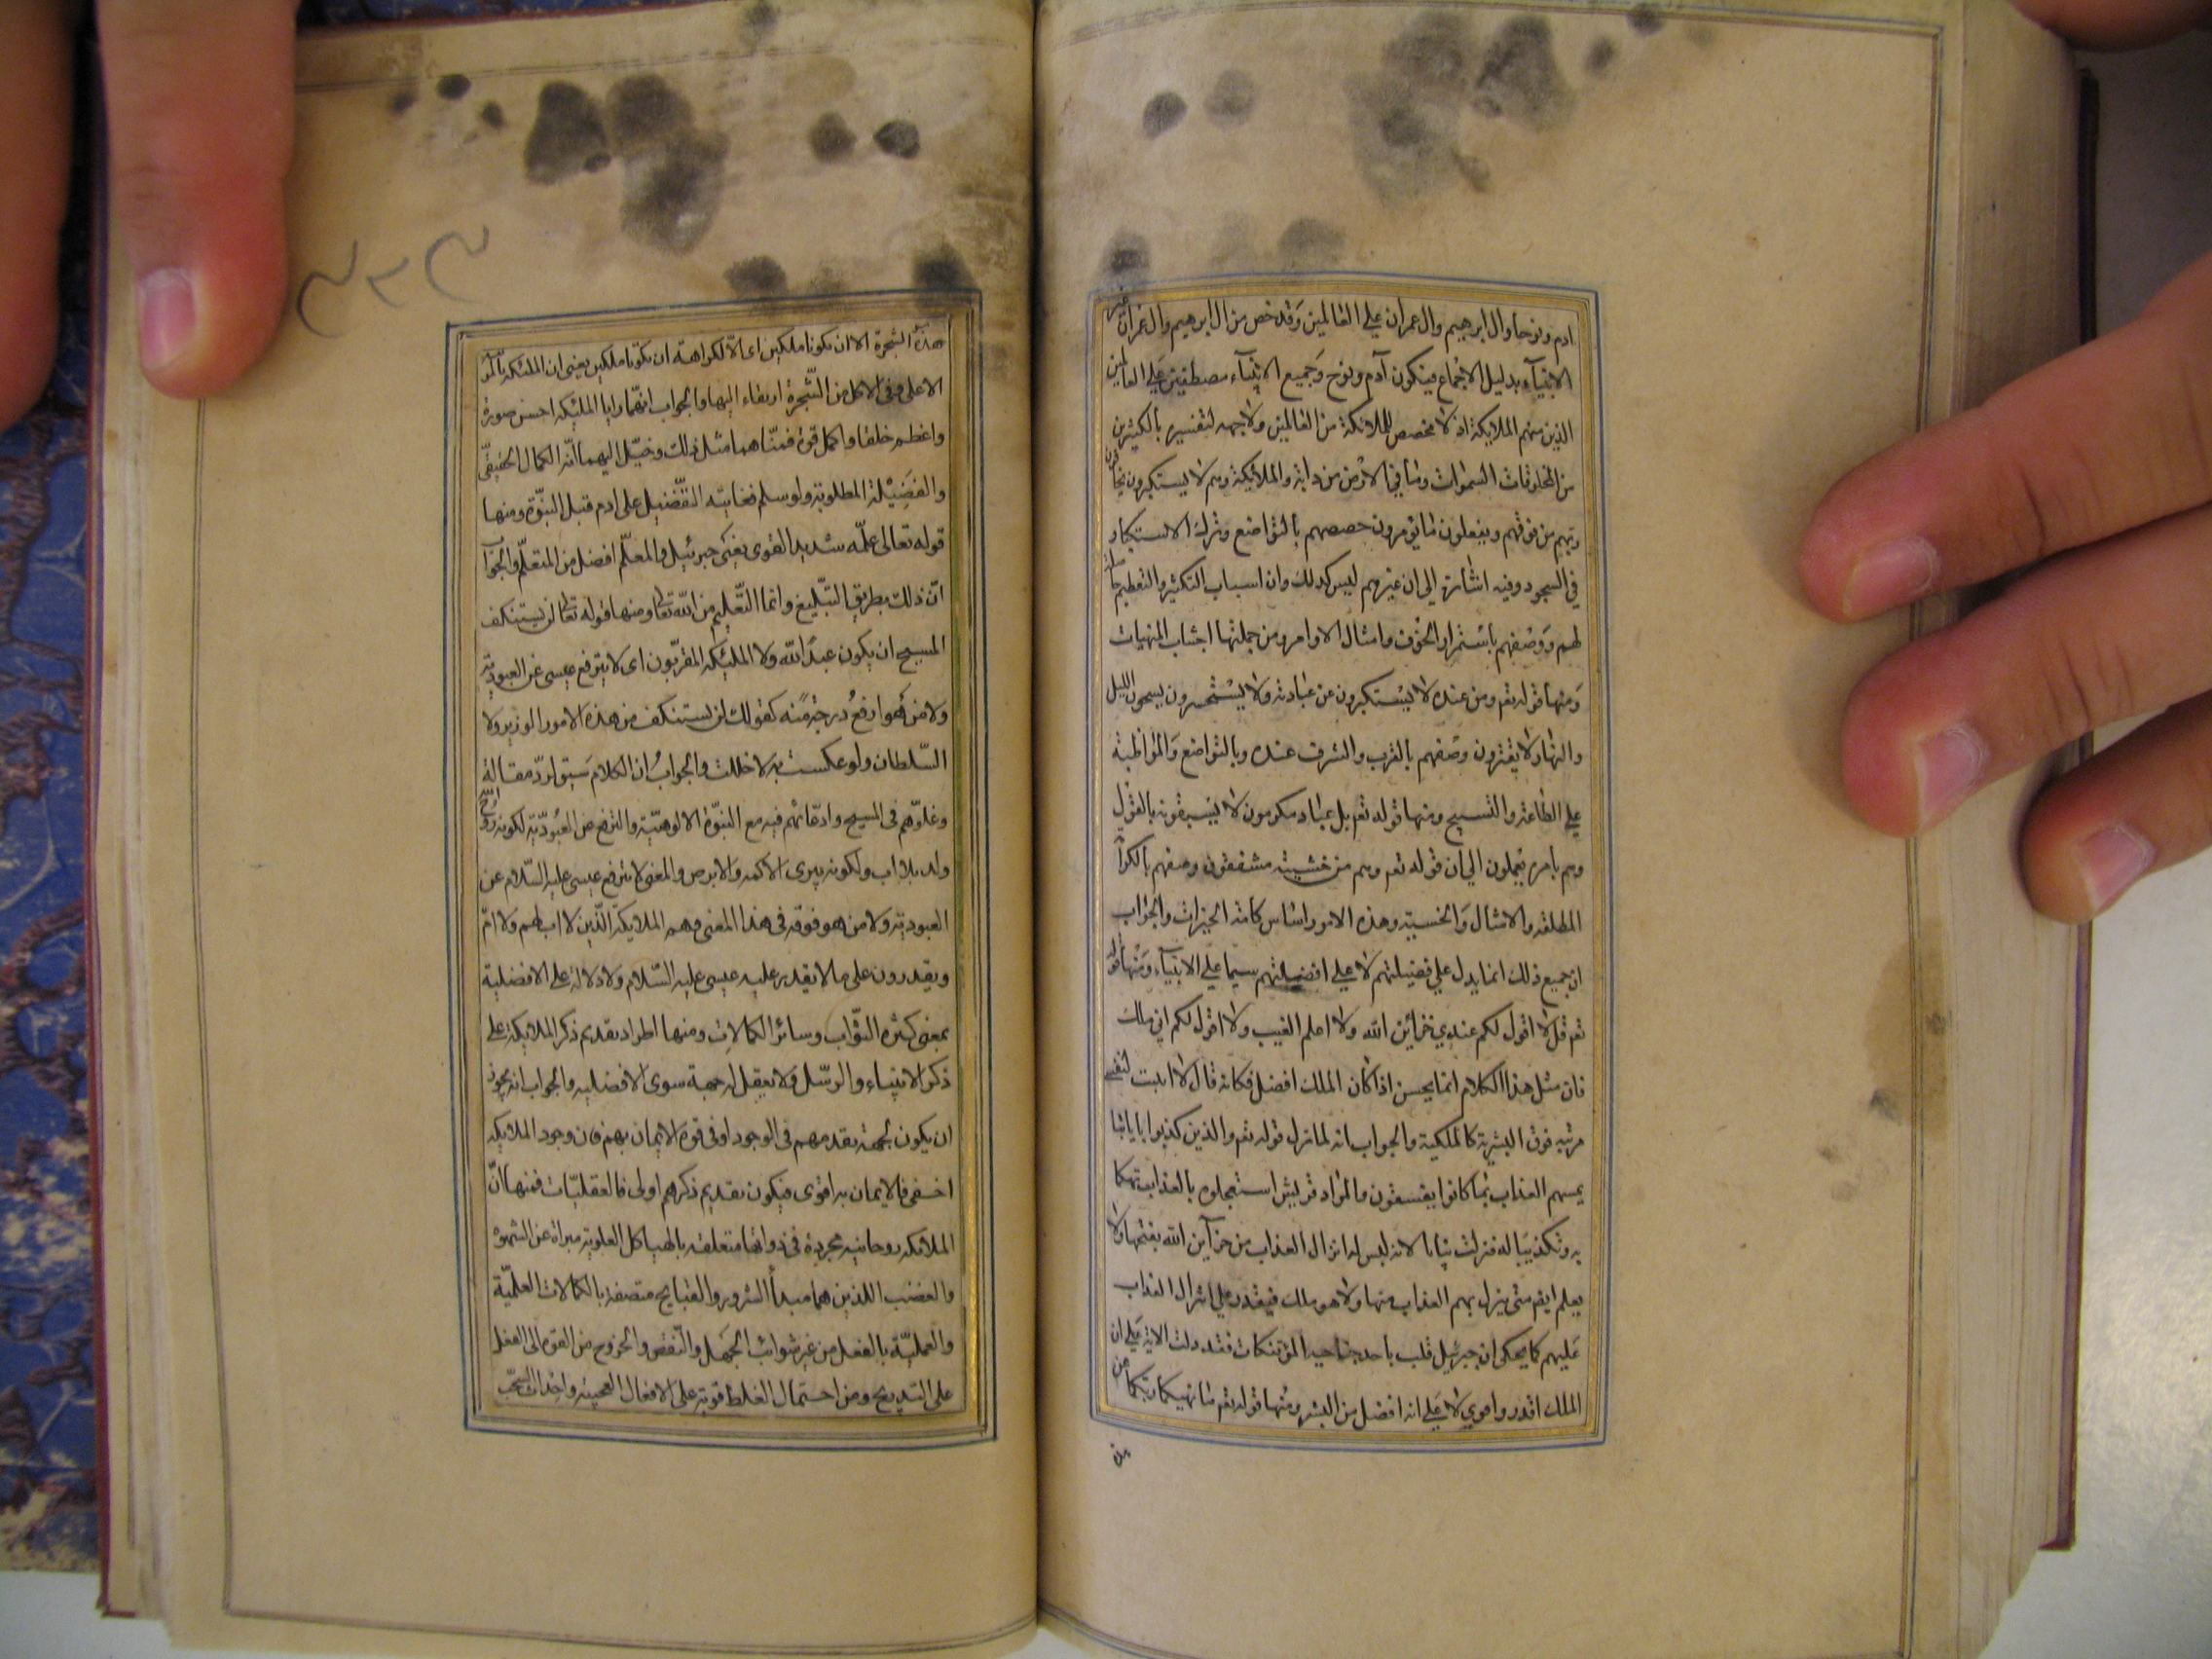 ادم ونوحا وال ابرهيم وال عمران علي العالمين وقد خص من ال ابرهيم وال عمران غير
الانبيآء بدليل الاجماع فيتكون آدم ونوح وجميع الانبيآء مصطفين علي العالمين
الذين منهم الملايكة اذ لا مخصص للملائكة من العالمين ولا جهه لتفسيره بالكثيرين
من المخلوقات السموات وما في الارض من دابة والملائكة وهم لا يستكبرون يخافون
ربهم من فوقهم ويفعلون ما يؤمرون خصصهم بالتواضع وترك الاستكبار
في السجود وفيه اشارة الي ان غيرهم ليس كدلك وان اسباب التكثير والتعظيم حاصلة
لهم ووصفهم باستمرار الخوف وامثال الاوامر ومن جملتها اجتناب المنهيات
ومنها قوله تعم ومن عنده لا يستكبرون عن عبادته ولا يستحسرون يسبحون الليل
والنهار لا يفترون وصفهم بالقرب والشرف عنده وبالتواضع والمواظبة
علي الطاعة والتسبيح ومنها قوله تعم بل عباد مكرمون لا يسبقونه بالقول
وهم بامره يعملون الي ان قوله تعم وهم من خشيته مشفقون وصفهم بالكرامة
المطلقة والامتثال والخشية وهذه الامور اساس كافة الخيرات والجواب
ان جميع ذلك انما يدل علي فضيلتهم لا علي افضيلتهم سيما علي الانبيآء ومنها قوله
تعم قل لا اقول لكم عندي خزائن الله ولا اعلم الغيب ولا اقول لكم اني ملك
فان مثل هذا الكلام انما يحسن اذا كان الملك افضل فكانه قال لا اثبت لنفسي
مرتبه فوق البشرية كالملكية والجواب انه لما نزل قوله تعم والذين كذبوا باياتنا
يمسهم العذاب بما كانوا يفسقون والمراد قريش استعجلوه بالعذاب تهكما
به وتكذيبا له فنزلت بيانا لانه ليس له انزال العذاب من خزآين الله يفتحها ولا
يعلم ايضم متي ينزل بهم العذاب منها ولا هو ملك فيقدر علي انزال العذاب
عليهم كما يحكي ان جبرئيل قلب باحد جناحيه المؤتفكات فقد دلت الاية علي ان
الملك اقدر واقوي لا علي انه افضل من البشر ومنها قوله تعم ما نهيكما ربكما عن
هذه الشجرة الا ان يكونا ملكين اي الا لكراهة ان يكونا ملكين يعني ان الملئكة بالمر
الاعلى وفي الاكل من الشجرة ارتقاء اليها والجواب انهما رايا المليكه احسن صورة
واعظم خلقا واكمل قوة فمناهما مثل ذلك وخيل اليهما انه الكمال الحقيقي
والفضيلة المطلوبة ولو سلم فغايته التفضيل على ادم قبل النبوة ومنها
قوله تعالى علمه شديد القوى يعني جبرئيل والمعلم افضل من المتعلم والجواب
ان ذلك بطريق التبليغ وانما التعليم من الله تعا ومنها قوله تعا لن يستنكف
المسيح ان يكون عبدا لله ولا المليكه المقربون اى لا يترفع عيسى عن العبودية
ولا من هو ارفع درجة منه كقولك لن يستنكف من هذه الامور الوزير ولا
السلطان ولو عكست به لاخللت والجواب ان الكلام سيق لرد مقالة
وغلوهم فى المسيح وادعائهم فيه مع النبوة الالوهية والترفع عن العبودية لكونه روح الله
ولد بلا اب ولكونه يبرى الاكمه والابرص والمعنى لا يترفع عيسى عليه السلام عن
العبودية ولا من هو فوقه فى هذا المعنى وهم الملايكة الذين لا اب لهم ولا ام
ويقدرون على ما لا يقدر عليه عيسى عليه السلام ولا دلالة على الافضلية
بمعنى كثرة الثواب وسائر الكمالات ومنها اطراد تقديم ذكر الملايكة على
ذكر الانبياء والرسل ولا يعقل له جهة سوى الافضليه والجواب انه يجوز
ان يكون لجهة تقدمهم فى الوجود او فى قوة الايمان بهم فان وجود الملايكه
اخفى فالايمان به اقوى فيكون تقديم ذكرهم اولى فالعقليات فمنها ان
الملائكه روحانيه مجردة فى ذواتها متعلقه بالهياكل العلوية مبراة عن الشهوة
والغضب اللذين هما مبدأ الشرور والقبايح متصفة بالكمالات العلمية
والعملية بالفعل من غير شوائب الجهل والنقص والخروج من القوة الى الفعل
على التدريج ومن احتمال الغلط قوية على الافعال العجيبة واحداث السحب